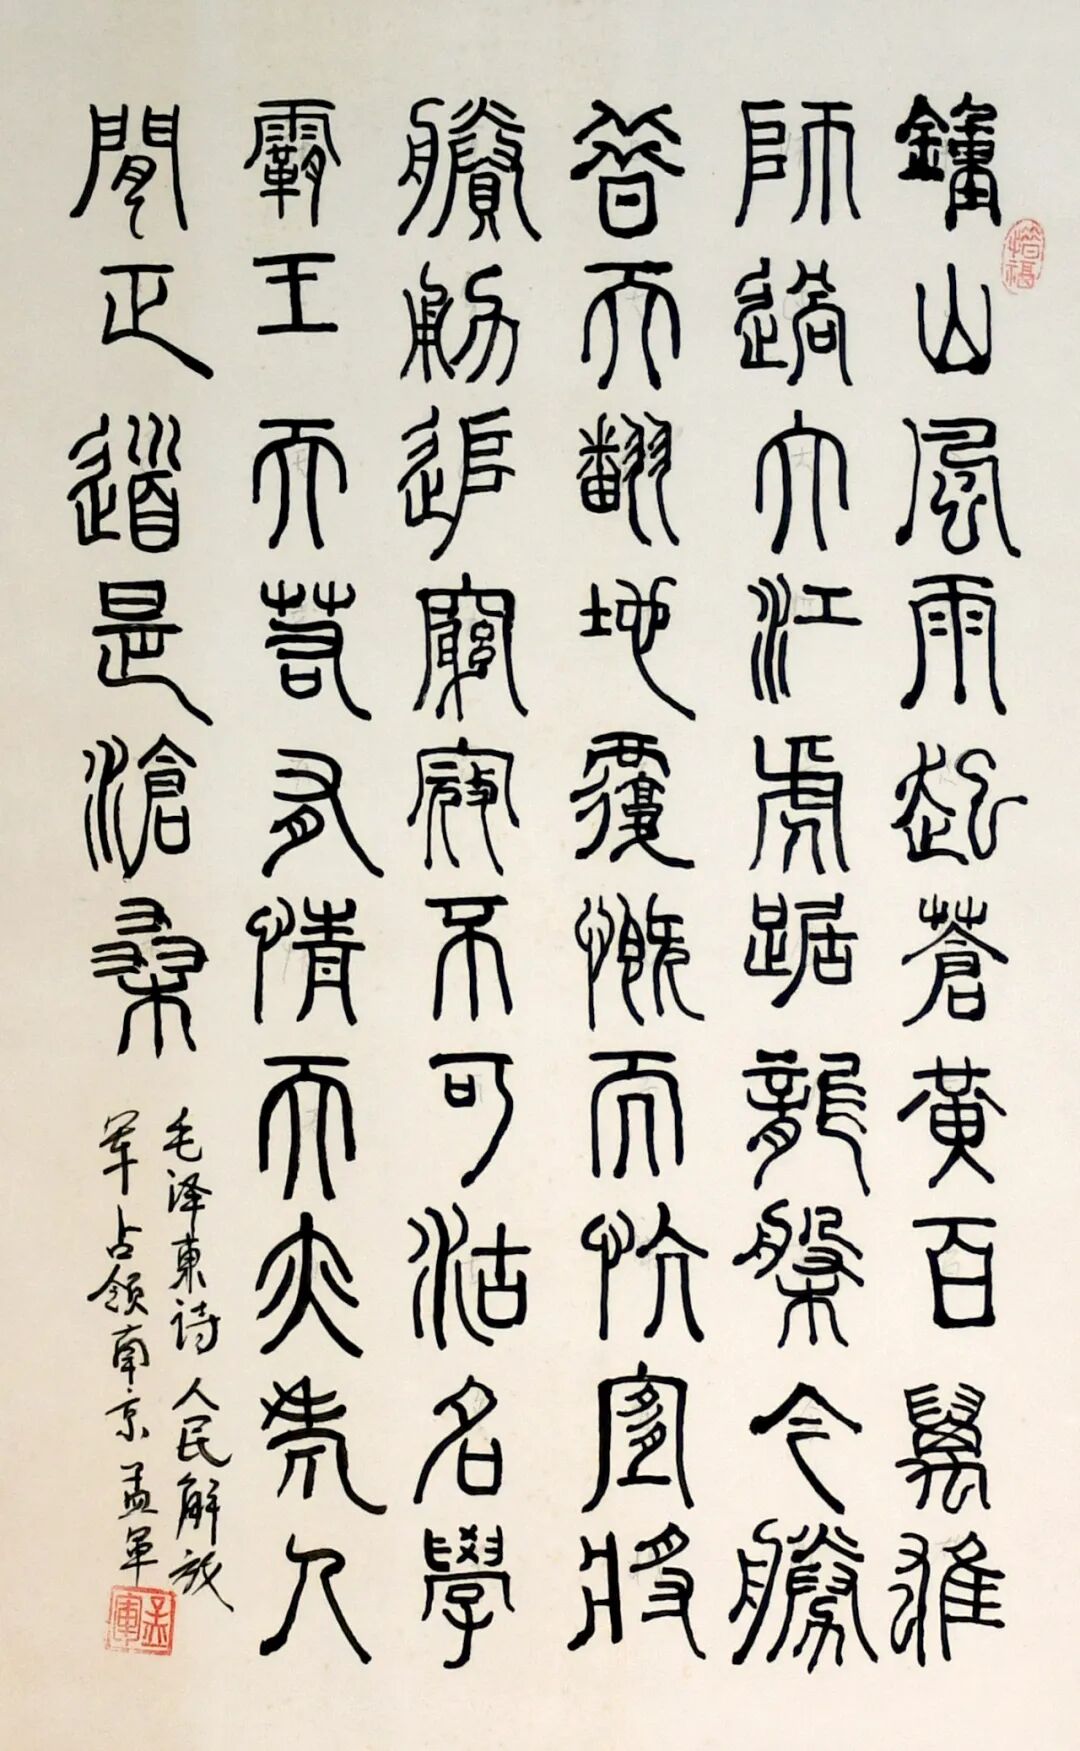 鐘山風雨起蒼黃百萬雄
師過大江虎踞龍盤今勝
昔天翻地覆慨而慷宜將
賸勇追窮寇不可沽名學
霸王天若有情天亦老人
間正道是滄桑
毛泽東诗 人民解放
军占领南京 孟军
孟軍